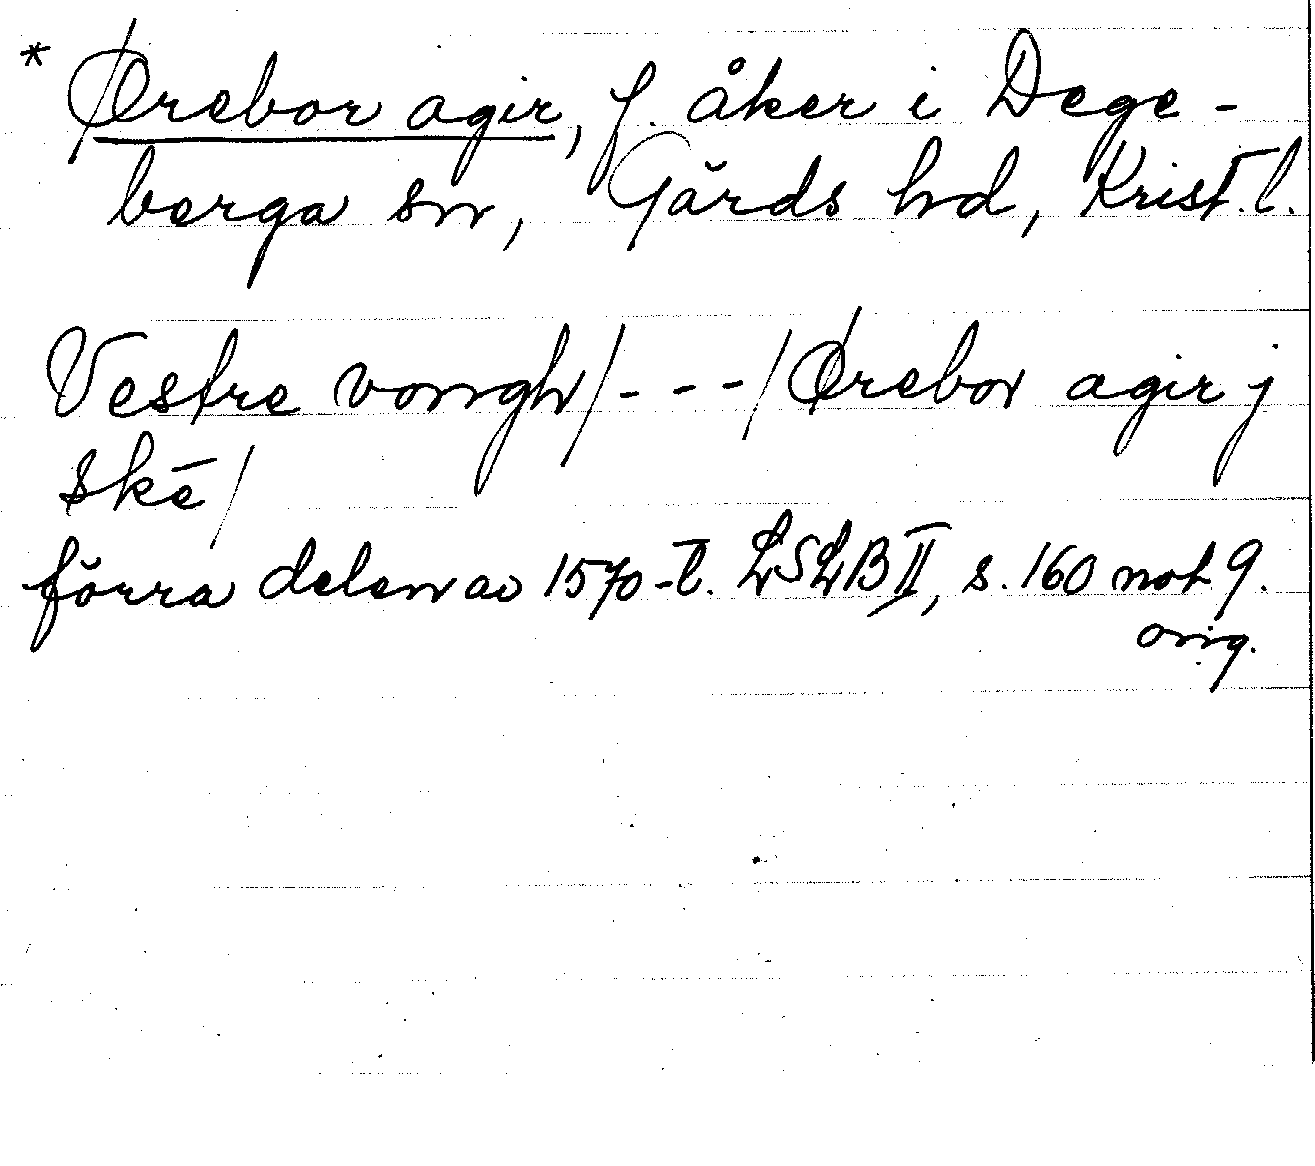 * Ørebor agir, f. åker i Dege-
berga sn, Gärds hd, Krist. l.
Vestre vongh/- - -/Ørebor agir j
skē/
förra delen av 1570-t. LSLB II, s. 160 not 9.
orig.